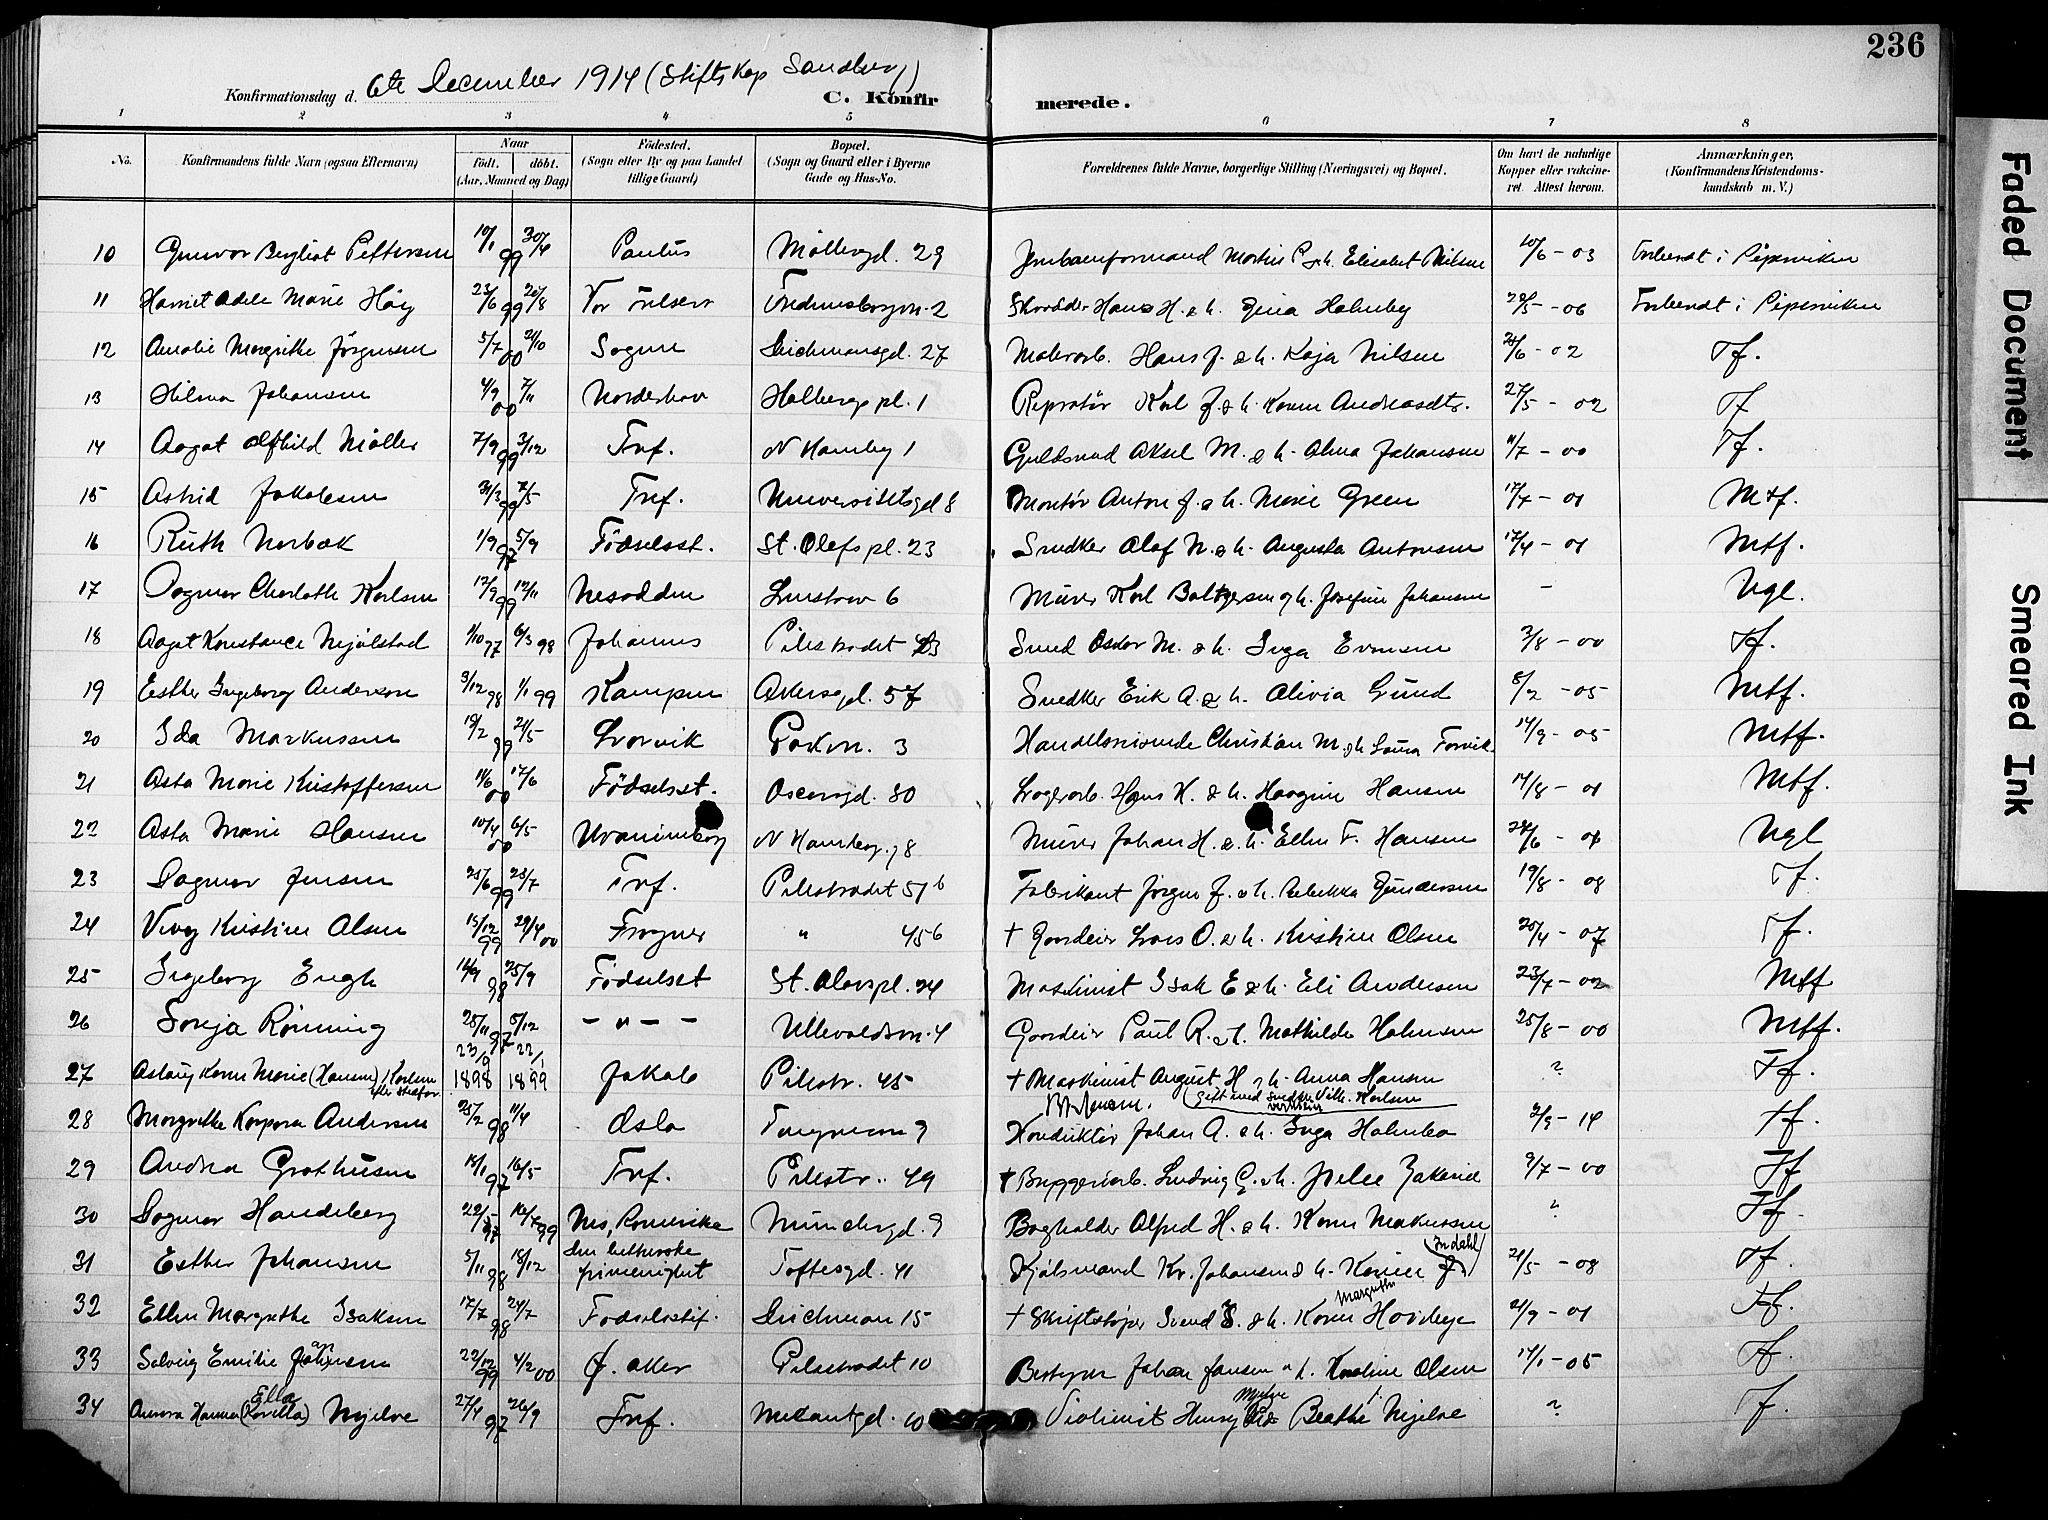 236
Konfirmationsdag d. 6te December 1914 (Stiftskap Sandberg)
C. Konfirmerede.
1 2 3 4 5 6 7 8
No. Konfirmandens fulde Navn (ogsaa Efternavn) Naar født. døbt. (Aar, Maaned og Dag) Fødested. (Sogn eller By og paa Landet tillige Gaard) Bopæl. (Sogn og Gaard eller i Byerne Gade og Hus-No. Forældrenes fulde Navne, borgerlige Stilling (Næringsvei) og Bopæl. Om havt de naturlige Kopper eller vaccineret. Attest herom. Anmærkninger, (Konfirmandens Kristendomskundskab m. V.)
10 Gunvor Bergliot Pettersen 10/1 99 30/4 Paulus Møllergd. 29 Jernbaneformand Martin P. & h. Elisabet Nilsen 10/6 - 03 Forberedt i Piperviken
11 Harriet Adele Marie Høig 23/6 99 20/8 Vor Frelsers Fredensborgvn. 2 Skrædder Hans H. & h. Gina Holmby 28/5 - 06 Forberedt i Piperviken
12 Amalie Margrethe Jørgensen 5/7 00 21/10 Sogne Deichmansgd. 27 Malerarb. Hans J. & h. Kaja Nilsen 24/6 - 02 Tf.
13 Hilma Johansen 4/9 00 7/11 Norderhov Holbergs pl. 1 Repratør Karl J. & h. Karen Andreasdtr. 27/5 - 02 Tf
14 Aagot Alfhild Møller 7/9 99 3/12 Tref. N Hamby 1 Guldsmed Aksel M. & h. Alma Johansen 11/7 - 00 Tf.
15 Astrid Jakobsen 31/3 99 7/5 Tref. Universitetsgd 8 Montør Anton J. & h. Marie Green 17/4 - 01 Mtf.
16 Ruth Norbæk 1/9 97 5/9 Fødselsst. St. Olefs pl. 23 Snedker Olaf N. & h. Augusta Antonsen 17/4 - 01 Mtf.
17 Dagmar Charlotte Karlsen 12/9 99 12/11 Nesodden Linstow 6 Murer Karl Baltzersen & h. Josefine Johansen - Ugl.
18 Aagot Konstance Mjølstad 1/10 97 6/3 98 Johannes Pilestrædet 43 Smed Oskar M. & h. Inga Evensen 3/8 - 00 Tf.
19 Esther Ingeborg Anderson 3/12 98 1/1 99 Kampen Akersgd. 57 Snedker Erik A. & h. Olivia Lund 8/2 - 05 Mtf.
20 Ida Markussen 19/2 99 21/5 Larvik Parkvn. 3 Handelsreisende Christian M. & h. Laura Forvik 14/9 - 05 Mtf.
21 Asta Marie Kristoffersen 11/6 00 17/6 Fødselsst. Oscarsgd. 80 Lagerarb. Hans K. & h. Haagine Hansen 14/8 - 01 Mtf.
22 Asta Marie Hansen 10/4 00 6/5 Uranienborg N Hamberg. 8 Murer Johan H. & h. Ellen F. Hansen 24/6 - 04 Ugl
23 Dagmar Jensen 25/6 99 23/7 Tref. Pilestrædet 51b Fabrikant Jørgen J. & h. Rebekka Gundersen 19/8 - 08 Tf.
24 Vivy Kristine Olsen 15/12 99 29/4 00 Frogner " 45b † Gaardeier Lars O. & h. Kristine Olsen 20/4 - 07 Tf.
25 Ingeborg Engh 16/9 98 25/9 Fødselsst St. Olavspl. 24 Maskinist Isak E. & h. Eli Andersen 23/7 - 02 Mtf
26 Sonja Rønning 25/11 97 5/12 - " - - Ullevoldsvn. 4 Gaardeier Paul R. & h. Mathilde Halvorsen 25/8 - 00 Mtf.
27 Aslaug Karen Marie (Hansen) Karlsen efter stedfar. 23/9 1898 22/1 1899 Jakob Pilestr. 45 † Maskinist August H. & h. Anna Hansen (gift med Snedker Vilh. Karlsen ? Tf.
28 Margrethe Korpora Andersen 25/2 98 11/4 Oslo Tuengen 9 Konduktør Johan A. & h. Inga Holmbo 2/9 - 14 Tf.
29 Andrea Grothusen 15/1 97 16/5 Tref. Pilestr. 49 † Bryggeriarb. Ludvig G. & h. Julie Zakarid 9/7 - 00 Tf
30 Dagmar Handeberg 22/5 97 16/7 99 Nes, Romerike Munchsgd. 9 Bogholder Alfred H. & h. Karen Makussen ? Tf
31 Esther Johansen 5/11 98 18/12 den lutherske frimenighet Toftesgd. 41 Hjulsmand Kr. Johansen & h. Karen J. (Indahl) 21/5 - 08 Tf.
32 Ellen Margrethe Isaksen 17/7 98 24/7 Fødselsstif. Deichman 15 † Skriftstøper Svend I. & h. Karen Margrethe Hovbye 21/9 - 01 Tf.
33 Solveig Emilie Jansen 22/12 99 4/2 00 Ø. Aker Pilestrædet 10 Bestyrer Johan Jansen & h. Karoline Olsen 14/1 - 05 Tf.
34 Aurora Hanna (Kovilla) Ella Mjelve 27/4 97 26/9 Tref. Neuantgd. 10 Violinist Henry Mjelve Beathe f. Mjelve ? Tf.
Faded Document
Smeared Ink